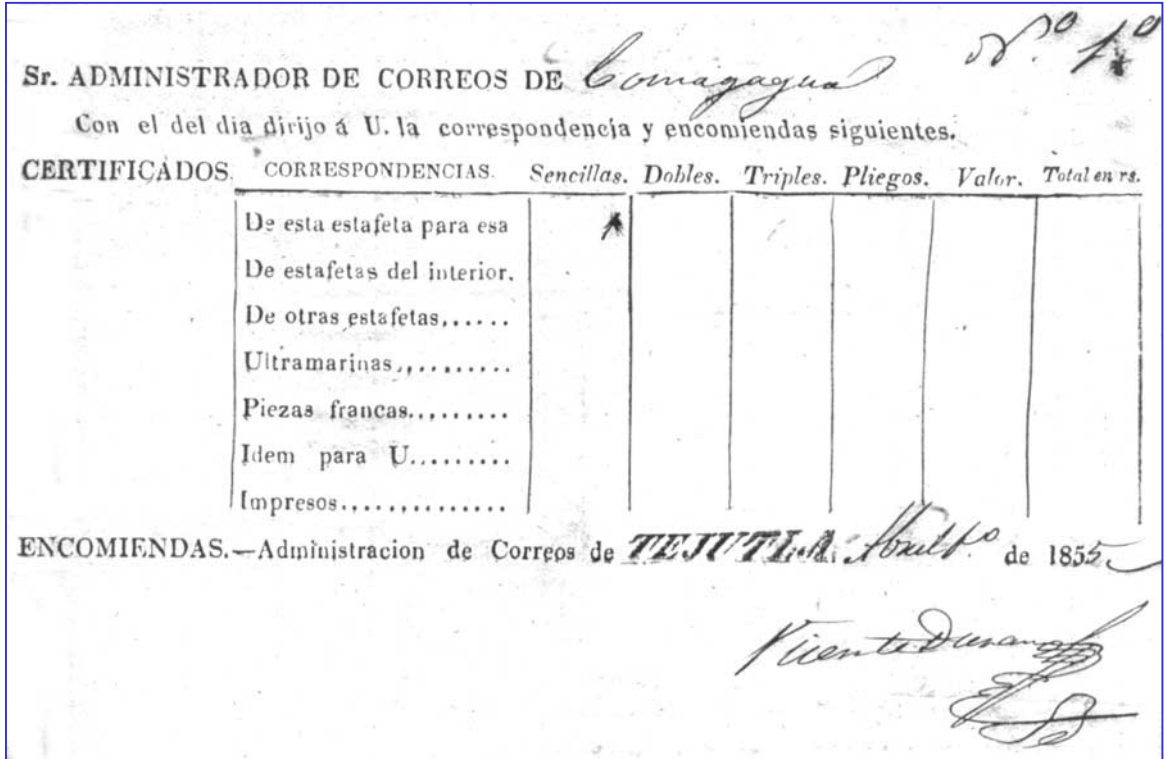 Nº 1º
Sr. ADMINISTRADOR DE CORREOS DE Comayagua
Con el del dia dirijo á U. la correspondencia y encomiendas siguientes.
CERTIFICADOS. CORRESPONDENCIAS. Sencillas. Dobles. Triples. Pliegos. Valor. Total en rs.
De esta estafeta para esa 1
De estafetas del interior.
De otras estafetas......
Ultramarinas..........
Piezas francas.........
Idem para U.........
Impresos..............
ENCOMIENDAS.—Administracion de Correos de TEJUTLA. Abril 1º de 1855
Vicente Duran